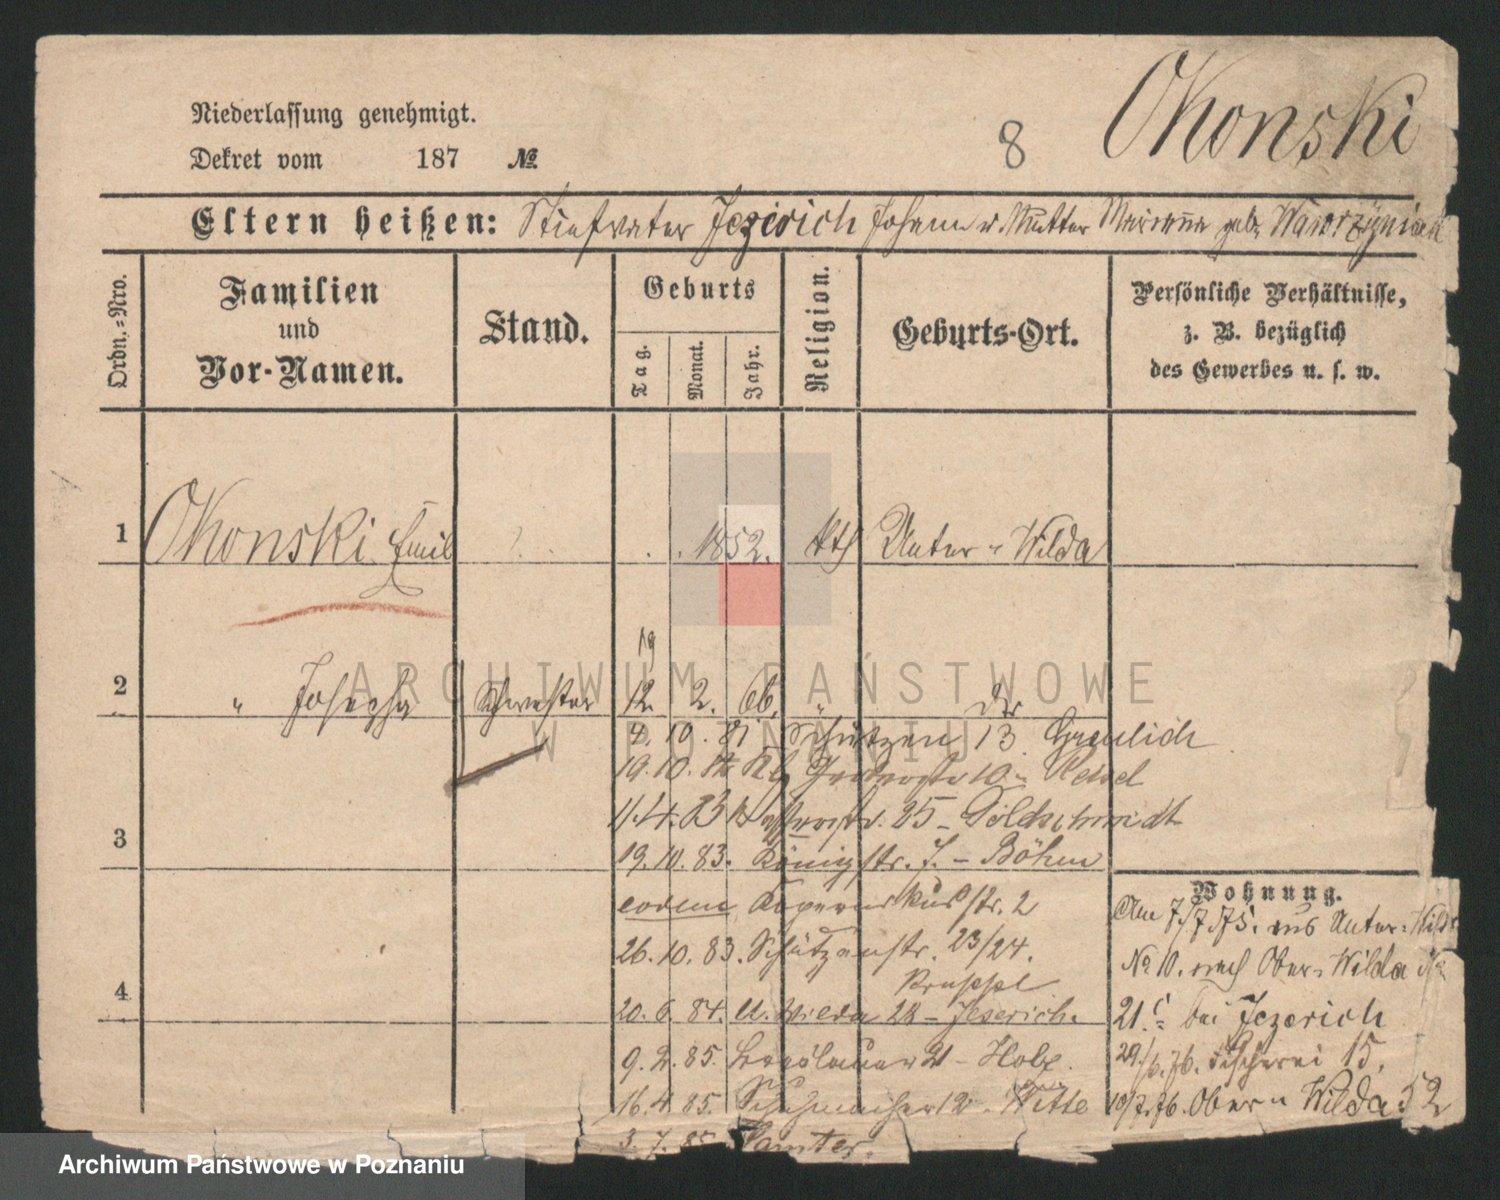 Niederlassung genehmigt.
Dekret vom 187 №
8
Okonski
Eltern heißen: Stiefvater Jezierich Johann u. Mutter Marianna geb. Wawrzyniak
Ordn.-Nro.
Familien
und
Vor-Namen.
Stand.
Geburts
Tag.
Monat.
Jahr.
Religion.
Geburts-Ort.
Persönliche Verhältnisse,
z. B. bezüglich
des Gewerbes u. s. w.
1 Okonski Emil 1852. kth Unter-Wilda
19
2 " Josepha Schwester 12. 2. 66. " do
4. 10. 81 Schützen 13 Greulich
19. 10. 10 - Reisel
11. 4. 83 25 - Goldschmidt
3
19. 10. 83. Königstr. 7. - Böhm
eodem Kopernikusstr. 2
26. 10. 83. Schützenstr. 23/24.
Kruppel
4
20. 6. 84. U. Wilda 28 - Jeserich.
9. 2. 85. Breslauer 21 - Holz.
16. 4. 85. Schuhmacher 12 - Witte
3. 7. 85 Samter.
Wohnung.
Am 7./7. 75. aus Unter-Wilda
No 10. nach Ober-Wilda
21. bei Jezerich
29./6. 76. Fischerei 15.
10/7. 76. Ober Wilda 52
ARCHIWUM PAŃSTWOWE
W POZNANIU
Archiwum Państwowe w Poznaniu